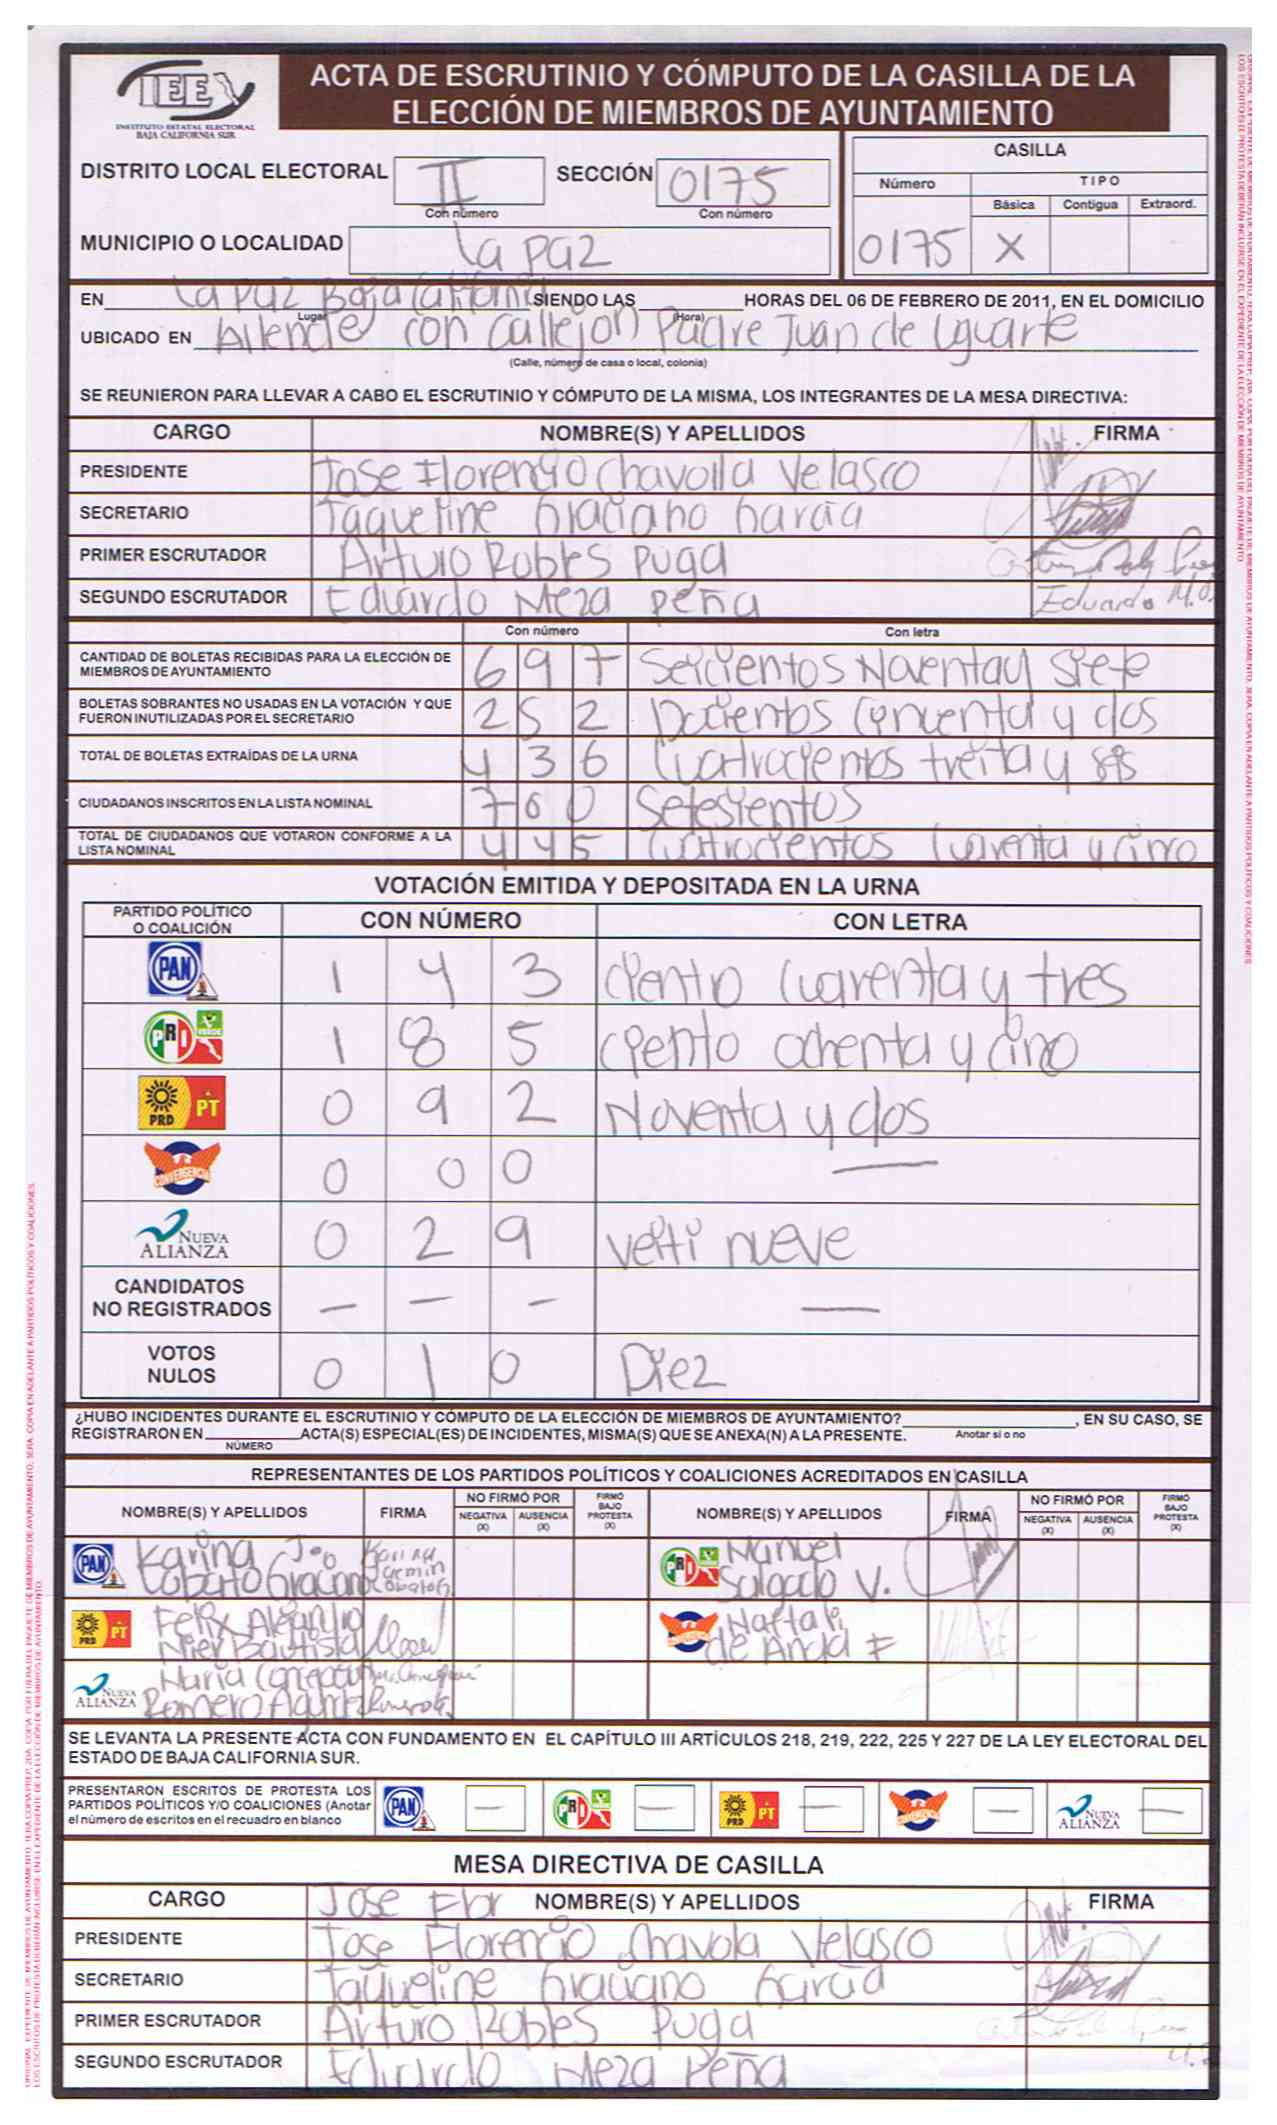 IEE
INSTITUTO ESTATAL ELECTORAL
BAJA CALIFORNIA SUR
ACTA DE ESCRUTINIO Y CÓMPUTO DE LA CASILLA DE LA
ELECCIÓN DE MIEMBROS DE AYUNTAMIENTO
DISTRITO LOCAL ELECTORAL II
Con número
SECCIÓN 0175
Con número
MUNICIPIO O LOCALIDAD La Paz
CASILLA
Número TIPO
Básica Contigua Extraord.
0175 X
EN La Paz Baja California SIENDO LAS HORAS DEL 06 DE FEBRERO DE 2011, EN EL DOMICILIO
Lugar (Hora)
UBICADO EN Allende con Callejon Padre Juan de Ugarte
(Calle, número de casa o local, colonia)
SE REUNIERON PARA LLEVAR A CABO EL ESCRUTINIO Y CÓMPUTO DE LA MISMA, LOS INTEGRANTES DE LA MESA DIRECTIVA:
CARGO NOMBRE(S) Y APELLIDOS FIRMA
PRESIDENTE Jose Florencio Chavolla Velasco
SECRETARIO Jaqueline Graciano Garcia
PRIMER ESCRUTADOR Arturo Robles Puga
SEGUNDO ESCRUTADOR Eduardo Meza Peña Eduardo M.P.
Con número Con letra
CANTIDAD DE BOLETAS RECIBIDAS PARA LA ELECCIÓN DE
MIEMBROS DE AYUNTAMIENTO 697 Seicientos Noventa y siete
BOLETAS SOBRANTES NO USADAS EN LA VOTACIÓN Y QUE
FUERON INUTILIZADAS POR EL SECRETARIO 252 Docientos Cincuenta y dos
TOTAL DE BOLETAS EXTRAÍDAS DE LA URNA 436 Cuatrocientos treita y seis
CIUDADANOS INSCRITOS EN LA LISTA NOMINAL 700 Setesientos
TOTAL DE CIUDADANOS QUE VOTARON CONFORME A LA
LISTA NOMINAL 445 Cuatrocientos Cuarenta y cinco
VOTACIÓN EMITIDA Y DEPOSITADA EN LA URNA
PARTIDO POLÍTICO
O COALICIÓN CON NÚMERO CON LETRA
PAN 1 4 3 ciento Cuarenta y tres
PRI VERDE 1 8 5 ciento ochenta y cinco
PRD PT 0 9 2 Noventa y dos
CONVERGENCIA 0 0 0 —
NUEVA ALIANZA 0 2 9 veiti nueve
CANDIDATOS
NO REGISTRADOS — — — —
VOTOS
NULOS 0 1 0 Diez
¿HUBO INCIDENTES DURANTE EL ESCRUTINIO Y CÓMPUTO DE LA ELECCIÓN DE MIEMBROS DE AYUNTAMIENTO? , EN SU CASO, SE
REGISTRARON EN ACTA(S) ESPECIAL(ES) DE INCIDENTES, MISMA(S) QUE SE ANEXA(N) A LA PRESENTE. Anotar si o no
NÚMERO
REPRESENTANTES DE LOS PARTIDOS POLÍTICOS Y COALICIONES ACREDITADOS EN CASILLA
NOMBRE(S) Y APELLIDOS FIRMA NO FIRMÓ POR NEGATIVA (X) AUSENCIA (X) FIRMÓ BAJO PROTESTA (X) NOMBRE(S) Y APELLIDOS FIRMA NO FIRMÓ POR NEGATIVA (X) AUSENCIA (X) FIRMÓ BAJO PROTESTA (X)
PAN Karina PRI Manuel
Salgado V.
PRD PT Felix CONVERGENCIA Naftali
Bautista de Anda F
NUEVA ALIANZA Maria
Romero
SE LEVANTA LA PRESENTE ACTA CON FUNDAMENTO EN EL CAPÍTULO III ARTÍCULOS 218, 219, 222, 225 Y 227 DE LA LEY ELECTORAL DEL
ESTADO DE BAJA CALIFORNIA SUR.
PRESENTARON ESCRITOS DE PROTESTA LOS
PARTIDOS POLÍTICOS Y/O COALICIONES (Anotar
el número de escritos en el recuadro en blanco
PAN — PRI — PRD PT — CONVERGENCIA — NUEVA ALIANZA —
MESA DIRECTIVA DE CASILLA
CARGO Jose Flor NOMBRE(S) Y APELLIDOS FIRMA
PRESIDENTE Jose Florencio Chavola Velasco
SECRETARIO Jaqueline Graciano Garcia
PRIMER ESCRUTADOR Arturo Robles Puga
SEGUNDO ESCRUTADOR Eduardo Meza Peña